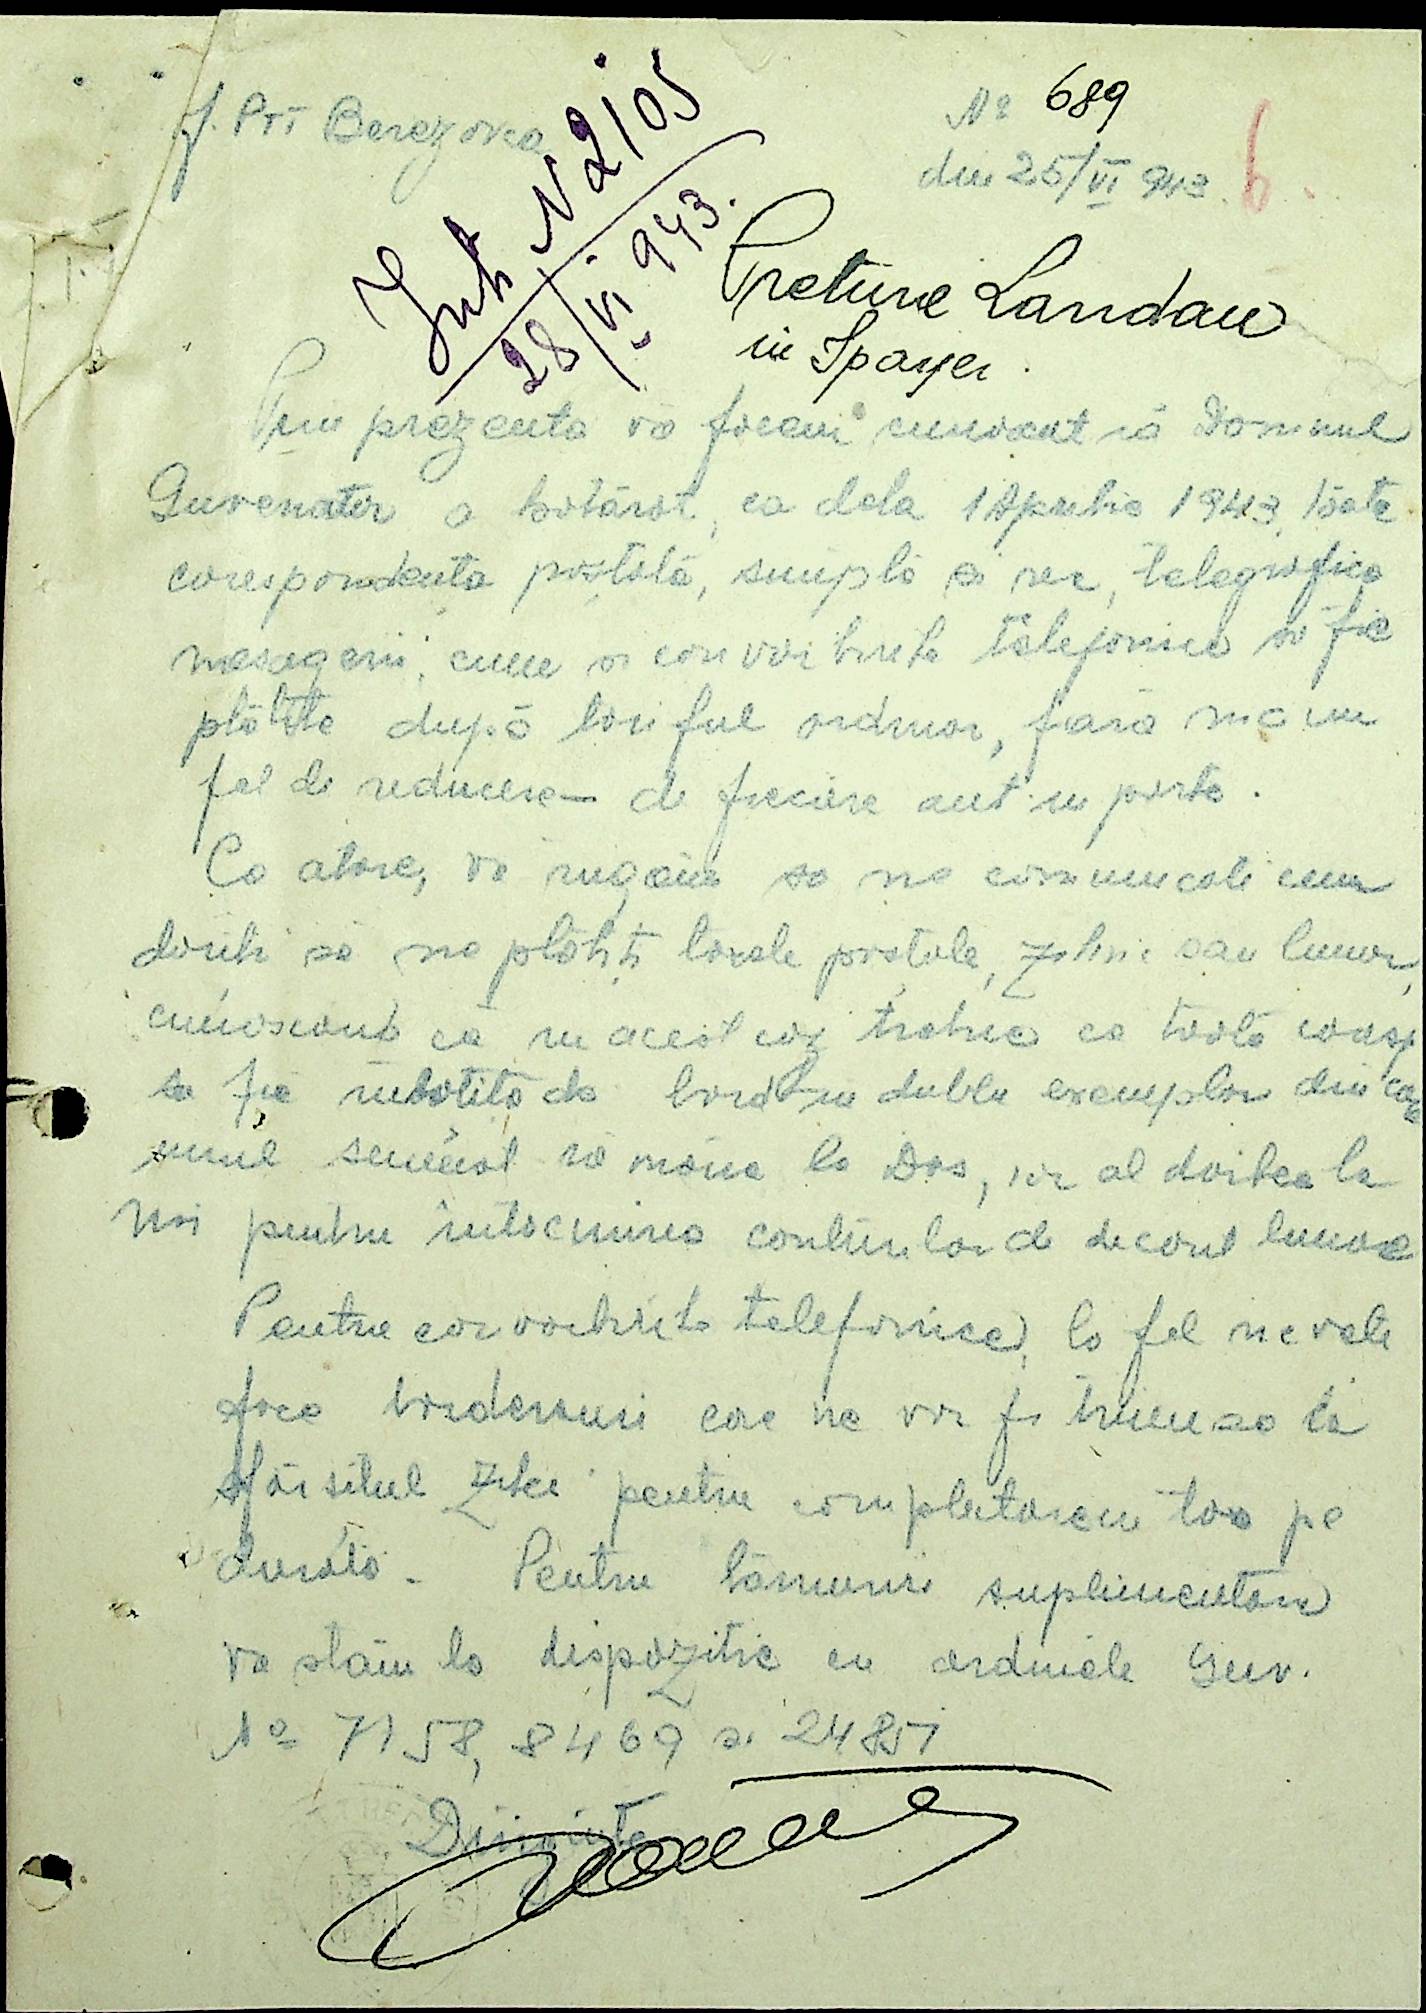 J. PTT Berezovca
No 689
din 25/VI 943.
6.
Intr. N 2105
28/VI 943.
Preturei Landau
in Spayer.
Prin prezenta vă facem cunoscut că Domnul
Guvenator a hotărât, ca dela 1 Aprilie 1943, toate
corespondenta poștală, simplă și rec, telegrafica
mesagerii, cum si convorbirile telefonice să fie
plătite după tariful ordinar, fără nici un
fel de reducere de fiecare aut in parte.
Ca atare, vă rugăm sa ne comunicati cum
doriti să ne plătiți taxele postale, zilnic sau lunar,
cunoscand că in acest caz trebue ca toată coresp
sa fie insotită de bord in dublu exemplar din care
unul semnat să rămâe la Dvs, iar al doilea la
Noi pentru intocmirea conturilor de decont lunare
Pentru convorbirile telefonice, la fel ne veti
face borderouri care ne vor fi trimese la
sfârsitul zilei pentru completarea tax pe
durată. Pentru lămuriri suplimentare
va stăm la dispozitie cu ordinele Guv.
No 7158, 8469 si 24851
Diriginte